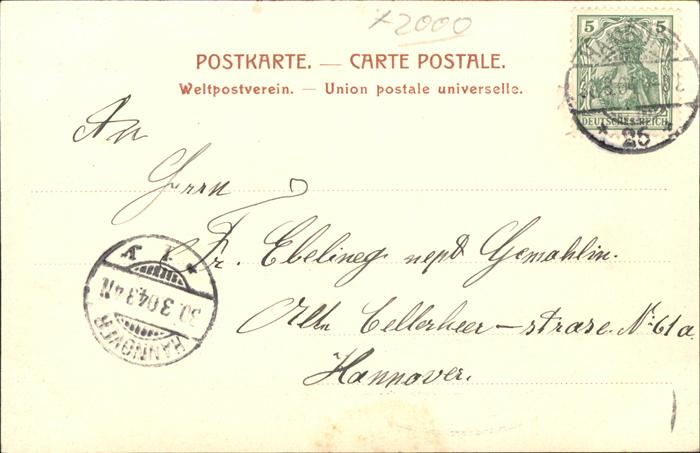 +2000
POSTKARTE. — CARTE POSTALE.
Weltpostverein. — Union postale universelle.
5 5
DEUTSCHES REICH
HANNOVER
* 25 *
An
Herrn
Fr. Ebeling nebst Gemahlin.
Alte Cellerheer-strasse. No 61a
Hannover.
HANNOVER
30.3.04.
* 1 *